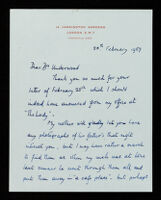 14 HARRINGTON GARDENS
LONDON S.W.7
20th February 1967
Dear Mr Underwood
Thank you so much for your
letter of February 25th which I should
indeed have answered from my office at
"The Lady".
My mother will gladly let you have
any photographs of his father's that might
interest you, and I may have rather a search
to find them as when my uncle was at home
last summer he went through them all and
put them away in "a safe place", but perhaps